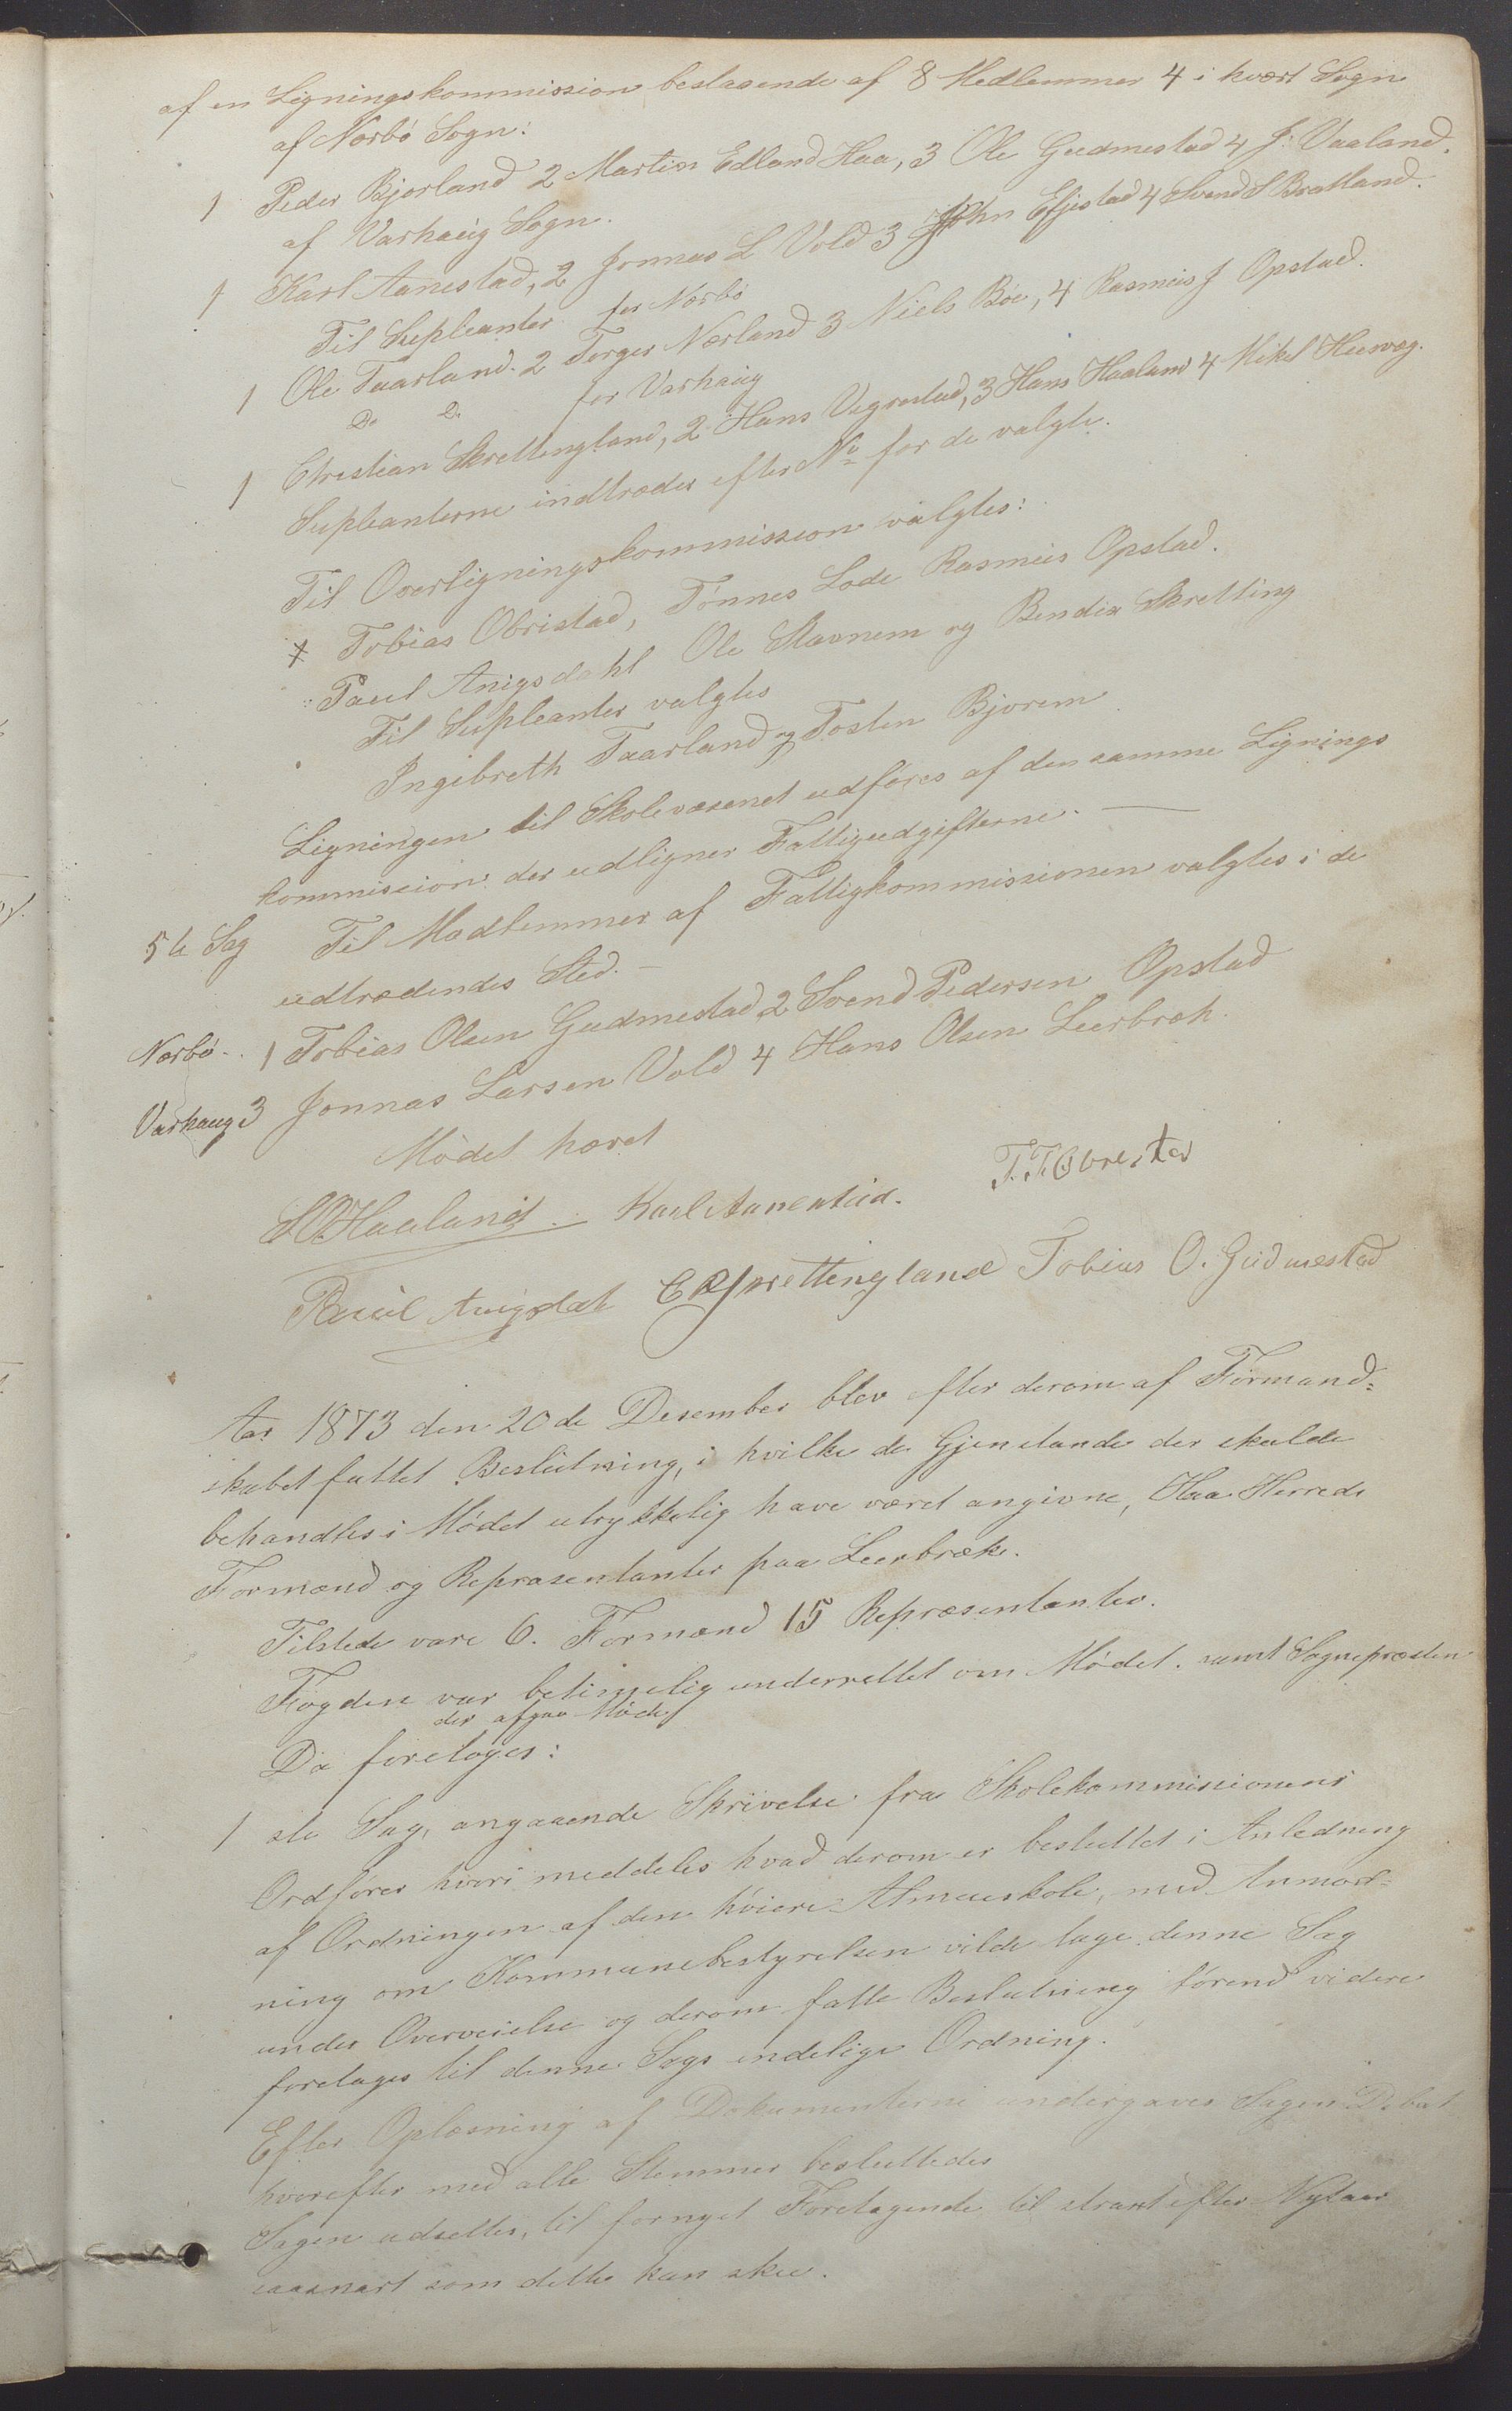 af en Ligningskommission bestaaende af 8 Medlemmer 4 i hvært Sogn
af Nærbø Sogn:
1 Peder Bjorland 2 Martin Edland Haa, 3 Ole Gudmestad 4 J. Vaaland.
af Varhaug Sogn.
1 Karl Aanestad, 2 Jonnas L Vold 3 John Efjestad 4 Svend S Bratland.
Til Supleanter for Nærbø
1 Ole Taarland. 2 Torger Nærland 3 Niels Bøe, 4 Rasmus J Opstad.
Do Do for Varhaug
1 Christian Skrettingland, 2 Hans Vigrestad, 3 Hans Haaland 4 Mikel
Supleanterne indtræder efter No for de valgte.
Til Overligningskommission valgtes:
Tobias Obristad, Tønnes Lode Rasmus Opstad.
Paul Anigsdahl Ole Stavnem og Bendix Skretting
Til Supleanter valgtes
Ingebreth Taarland og Tosten Bjorem
Ligningen til Skolevæsenet udføres af den samme Lignings
kommission der udligner Fattigudgifterne. —
5te Sag Til Medlemmer af Fattigkommissionen valgtes i de
udtrædendes Sted. —
Nærbø. 1 Tobias Olsen Gudmestad 2 Svend Pedersen Opstad
Varhaug 3 Jonnas Larsen Vold 4 Hans Olsen Leerbrek.
Mødet hævet
S O Haaland. Karl Aanestad. T. T. Obrestad
Paul Anigsdal C R Skrettingland Tobias O. Gudmestad
Aar 1873 den 20de Desember blev efter derom af Formand-
skabet fattet Beslutning, i hvilke de Gjenstande der skulde
behandles i Mødet utrykkelig have været angivne, Haa Herreds
Formænd og Repræsentanter paa Leerbrække.
Tilstede vare 6. Formænd 15 Repræsentanter.
Fogden var betimelig underrettet om Mødet. samt Sognepræsten
der afgav Møde
Da foretoges:
1ste Sag, angaaende Skrivelse fra Skolekommissionens
Ordfører hvori meddeles hvad derom er besluttet i Anledning
af Ordningen af den høiere Almueskole, med Anmod-
ning om Kommunebestyrelsen vilde tage denne Sag
under Overveielse og derom fatte Beslutning førend videre
foretages til denne Sags endelige Ordning.
Efter Oplæsning af Dokumenterne undergaves Sagen Debat
hvorefter med alle Stemmer besluttedes
Sagen udsettes, til fornyet Foretagende til straxt efter Nytaar
saasnart som dette kan skee.